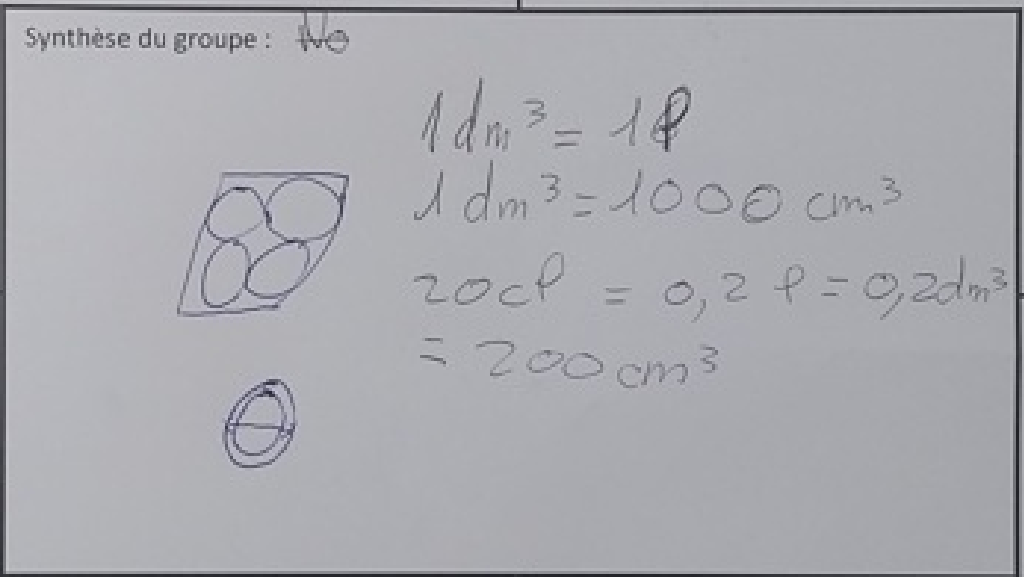 Synthèse du groupe :
1 dm³ = 1 l
1 dm³ = 1000 cm³
20 cl = 0,2 l = 0,2 dm³
= 200 cm³